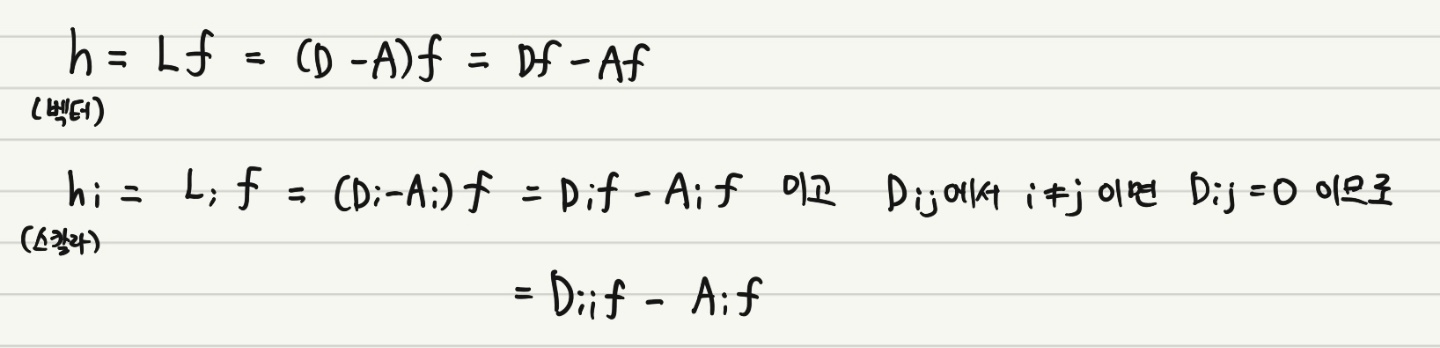 h = Lf = (D - A)f = Df - Af
(벡터)
hi = Li f = (Di - Ai) f = Di f - Ai f 이고 Dij에서 i ≠ j 이면 Dij = 0 이므로
(스칼라)
= Dii f - Ai f